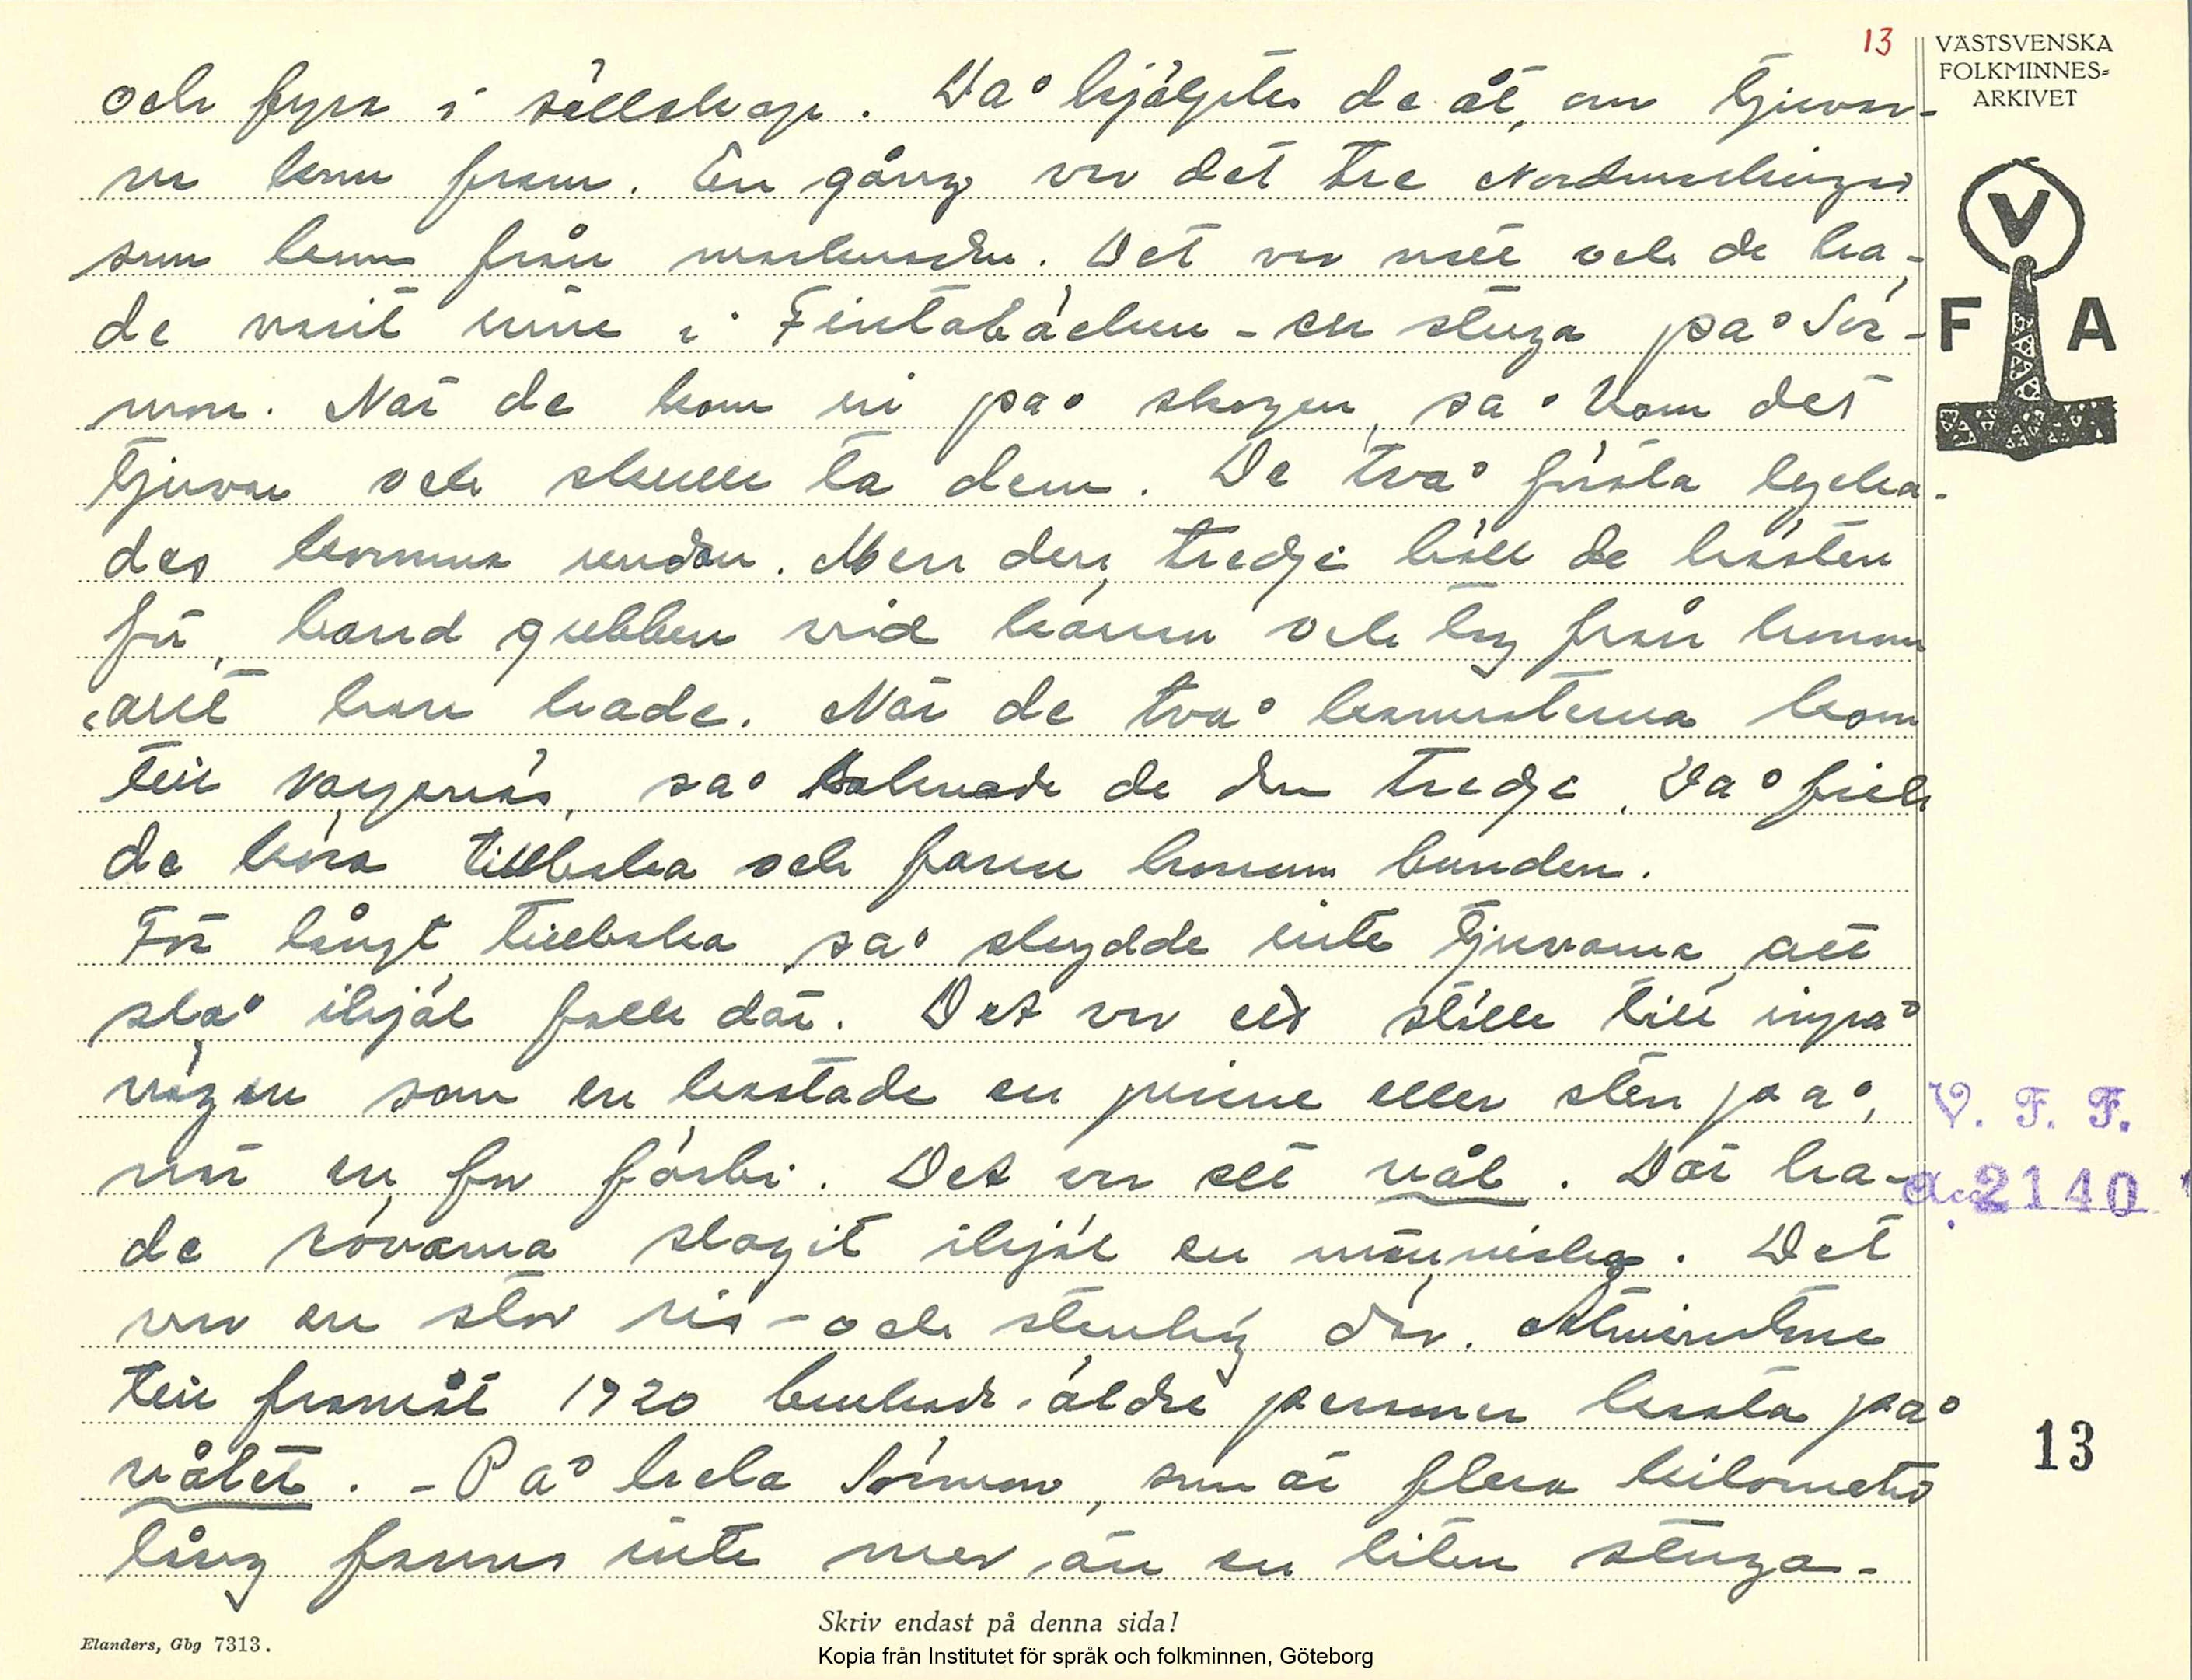 13
VÄSTSVENSKA
FOLKMINNES=
ARKIVET
V
F A
och fyra i sällskap. Då hjälptes de åt, om tjuvar-
na kom fram. En gång var det tre Nordmarkingar
som kom från marknaden. Det var natt och de ha-
de varit inne i Fintabäcken - en stuga på Sör-
mon. När de kom in på skogen, så kom det
tjuvar och skulle ta dem. De två första lycka-
des komma undan. Men den tredje höll de hästen
för, band gubben vid kärran och tog från honom
allt han hade. När de två kamraterna kom
till så saknade de den tredje. Då fick
de köra tillbaka och fann honom bunden.
För långt tillbaka så skydde inte tjuvarna att
slå ihjäl folk där. Det var ett ställe till inpå
vägen som en kastade en pinne eller sten på,
när en for förbi. Det var ett vål. Där ha-
de rövarna slagit ihjäl en människa. Det
var en stor ris- och stenhög där. Åtminstone
till framåt 1920 brukade äldre personer kasta på
vålet. - På hela Sörmon, som är flera kilometer
lång fanns inte mer än en liten stuga -
V. F. F.
2140
13
Skriv endast på denna sida!
Elanders, Gbg 7313.
Kopia från Institutet för språk och folkminnen, Göteborg